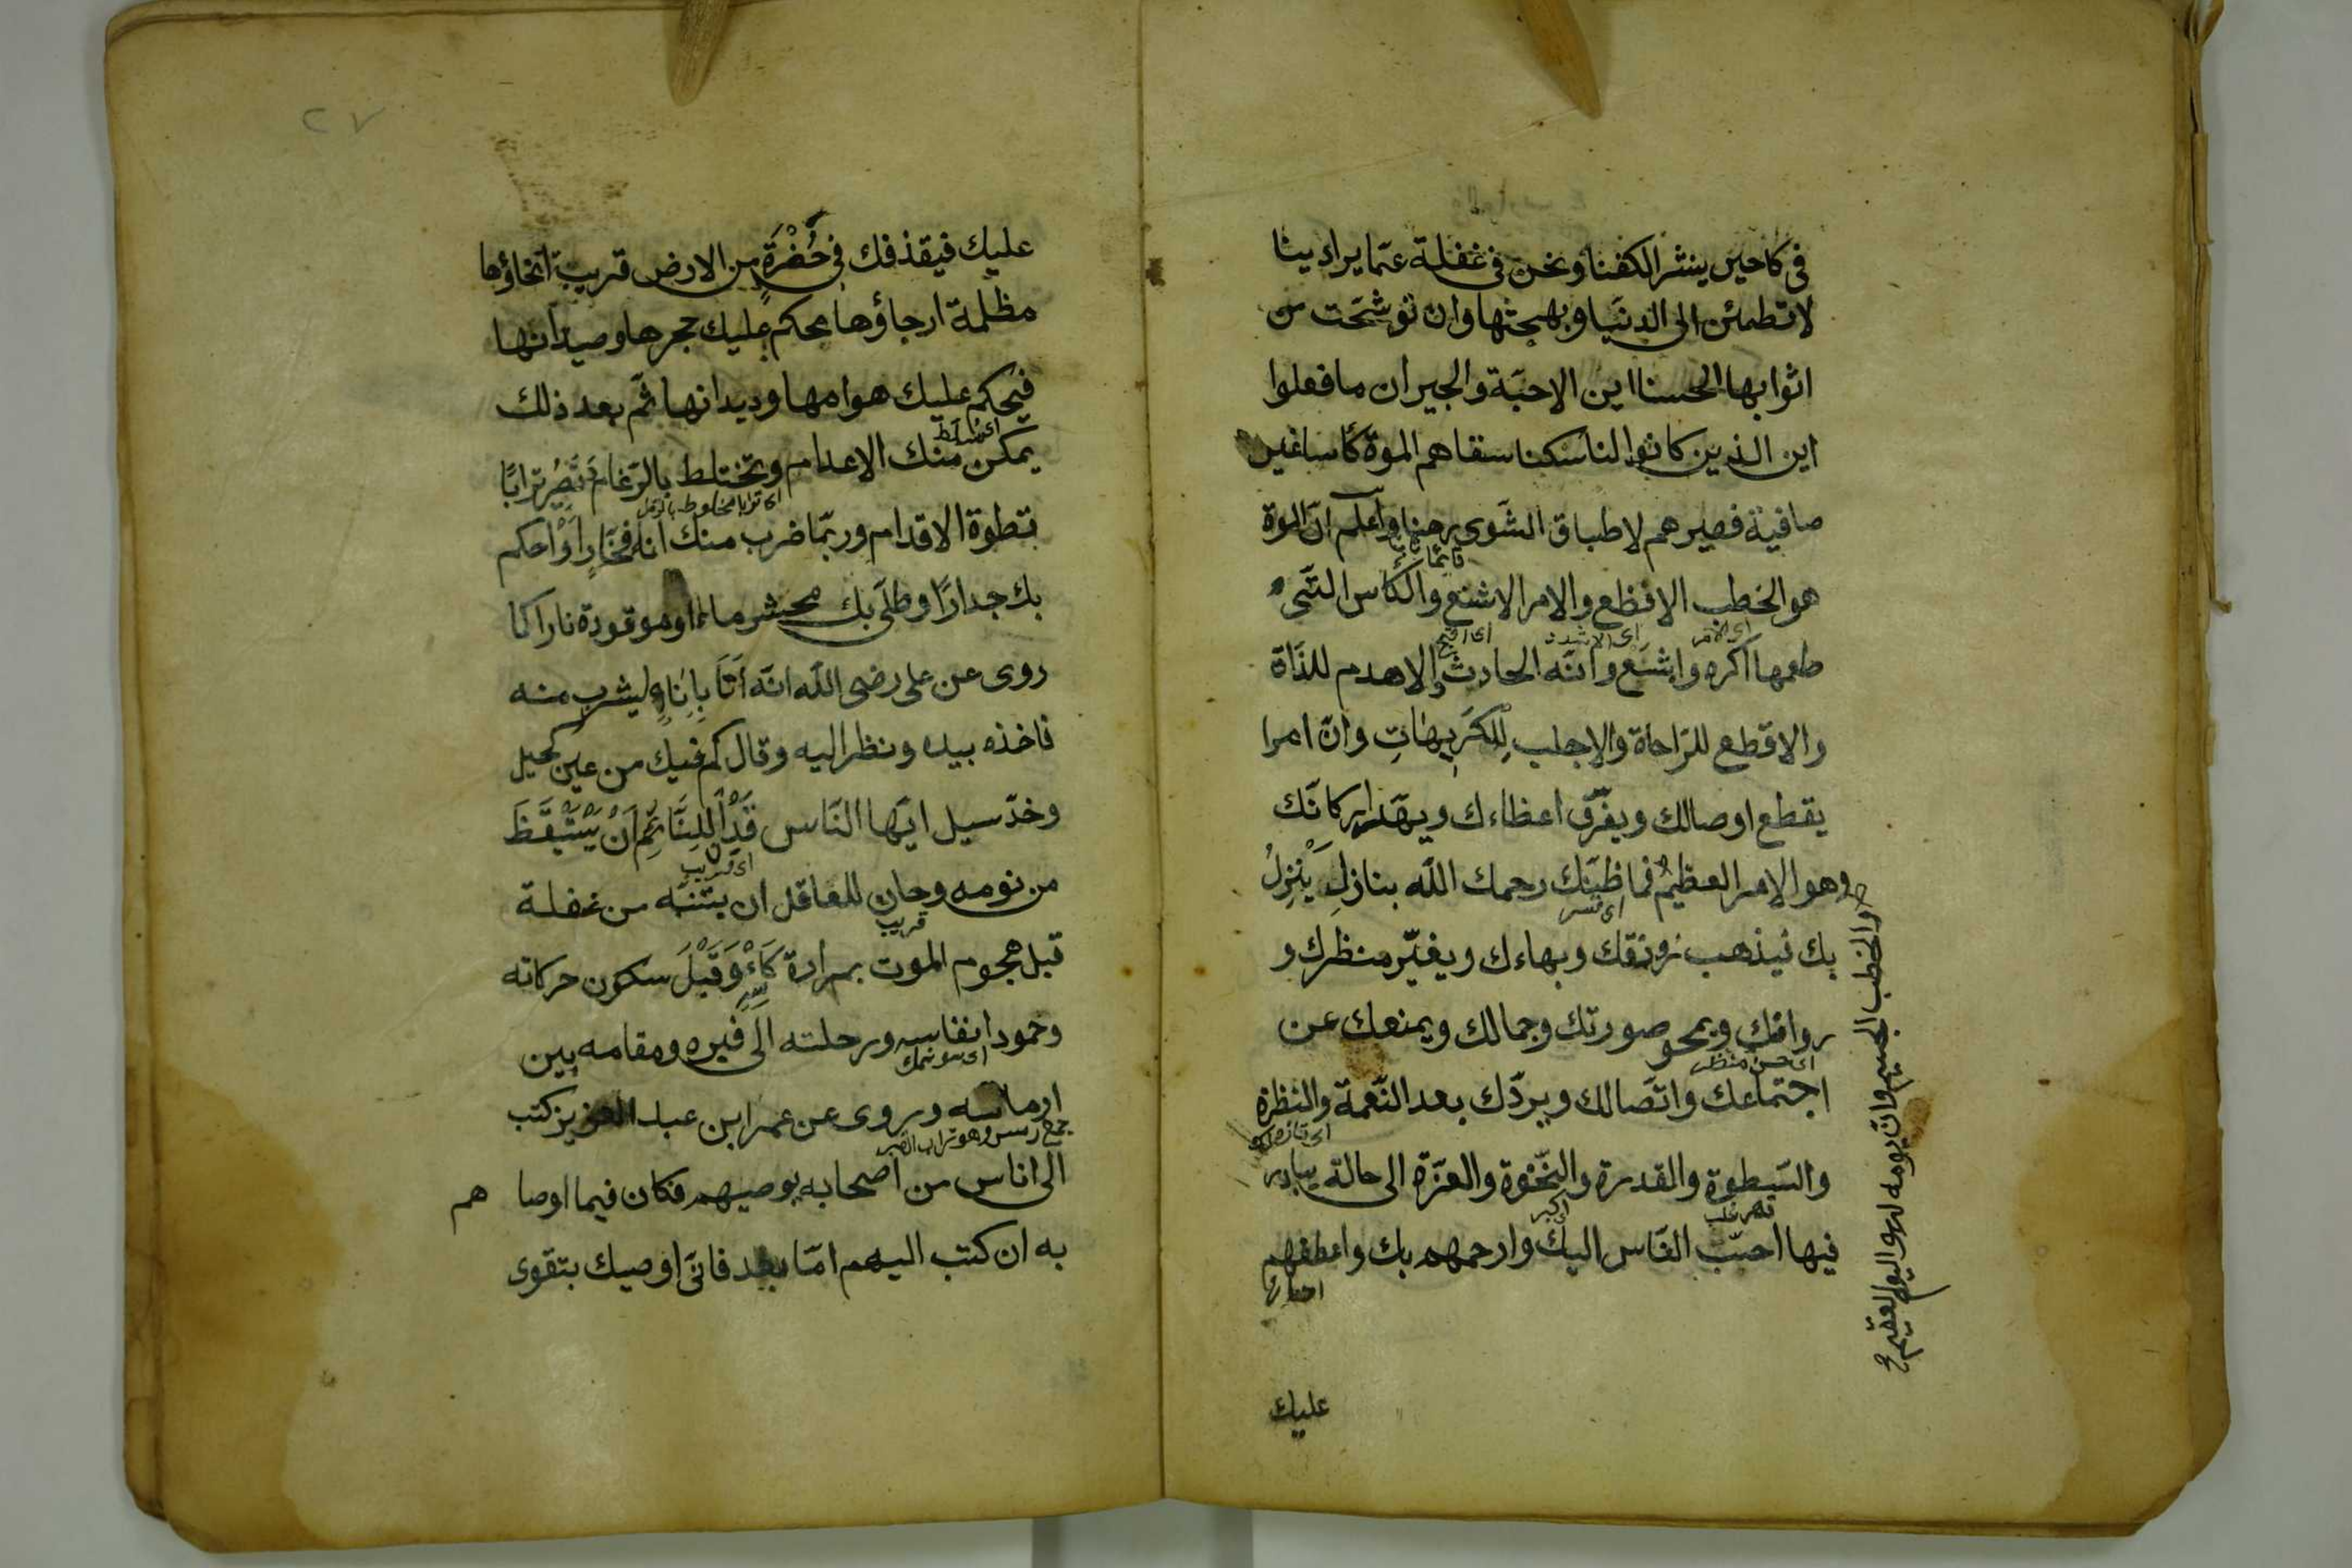 فى كاحين ينشر الكفنا ونحن فى غفلة عمّا يراد بينا
لا تطمئن الى الدنيا وبهجتها وان توشّحت من
اثوابها الحسنا اين الاحبّة والجيران ما فعلوا
اين الذين كانوا لنا سكنا سقاهم الموة كأسا غير
صافية فصيرهم لاطباق الشوى رهنا واعلم انّ الموة
هو الخطب الافظع والامر الاشنع والكأس التّى
اى الامر
اى الاشدد
اى اقبح
طعمها اكره واشنع وانّه الحادث الاهدم للذّاة
والاقطع للرّاحاة والاجلب للكريهات وانّ امرا
يقطع اوصالك ويفرّق اعظاءك ويهدّ اركانك
وهو الامر العظيم فما ظنّك رحمك الله بنازل ينزل
والخطب الجسيم وانّ يومه لهو اليوم العقيم
بك فيذهب رونقك وبهاءك ويغيّر منظرك و
روافك ويمحو صورتك وجمالك ويمنعك عن
اى حسن منظر
اجتماعك واتّصالك ويردّك بعد النّعمة والنظرة
والسّطوة والقدرة والنّخوة والعزّة الى حالة يبادر
اى كبر
فيها احبّ النّاس اليك وارحمهم بك واعطفهم
عليك
٢٧
عليك فيقذفك فى حُفْرَةٍ من الارض قريبة انحاؤها
مظلمة ارجاؤها محكم عليك حجرها وصيدانها
فيحكم عليك هوامها وديدانها ثمّ بعد ذلك
يمكن منك الاعدام وتختلط بالرّغام وتصير ترابًا
اى ترابا مخلوط بالرمل
تطوة الاقدام وربّما ضرب منك اناء فخّارا او احكم
بك جدارًا وطلى بك محشر ماء او موقودة نارا كما
روى عن على رضى الله انّه اَتَا بِاِنَاءٍ ليشرب منه
فاخذه بيده ونظر اليه وقال كم فيك من عين كحيل
وخدّ سيل ايّها النّاس قَدْ اٰنَ لِلنَّائِمِ اَنْ يَسْتَيْقَظَ
اى قريب
من نومه وحان للغافل ان يتنبّه من غفلة
قريب
قبل هجوم الموت بمرارة كَأْسٍ وَقَبْلَ سكون حركاته
وخمود انفاسه ورحلته الى قبره ومقامه بين
ارماسه وروى عن عمر ابن عبد العزيز كتب
جمع رمس وهو تراب القبر
الى اناس من اصحابه يوصيهم فكان فيما اوصا هم
به ان كتب اليهم امّا بعد فانّى اوصيك بتقوى